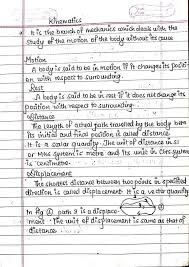 Kinematics
It is the branch of mechanics which deals with the
study of the motion of the body without its cause
Motion
A body is said to be in motion if it changes its posit-
ion with respect to surrounding.
Rest
A body is said to be in rest if it does not change its
position with respect to surrounding.
Distance
The length of actual path travelled by the body betn
its initial and final position is called distance.
It is a scalar quantity. The unit of distance in SI
or MKS system is metre and its unit in CGS system
is centimetre.
Displacement
The shortest distance between two points in specified
direction is called displacement. It is a vector quantity
In fig path 2 is a displace-
ment. The unit of displacement is same as that of
distance.